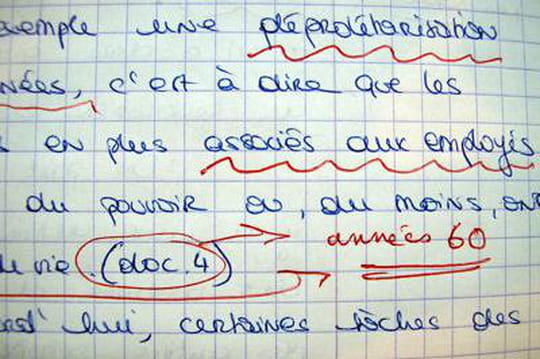 exemple une déprolétarisation
nées, c'est à dire que les
en plus associés aux employés
du pouvoir ou, du moins, ont
de vie. (doc. 4) années 60
hui, certaines tâches des